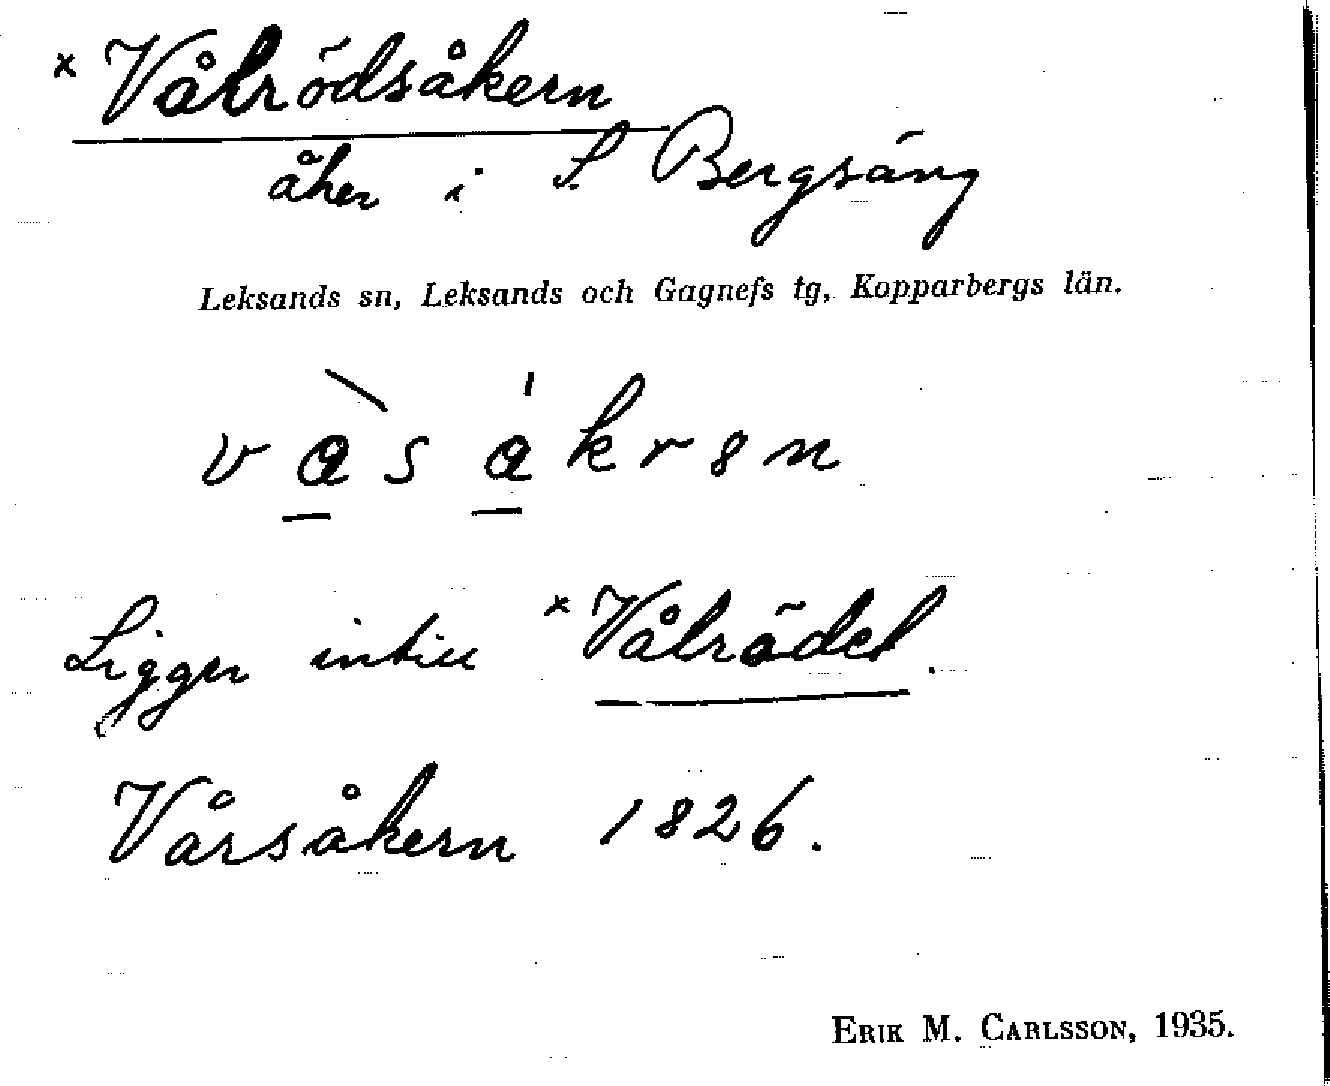 × Vålrödsåkern
åker i S. Bergsäng
Leksands sn, Leksands och Gagnefs tg, Kopparbergs län.
Ligger intill × Vålrödet.
Vårsåkern 1826.
ERIK M. CARLSSON, 1935.